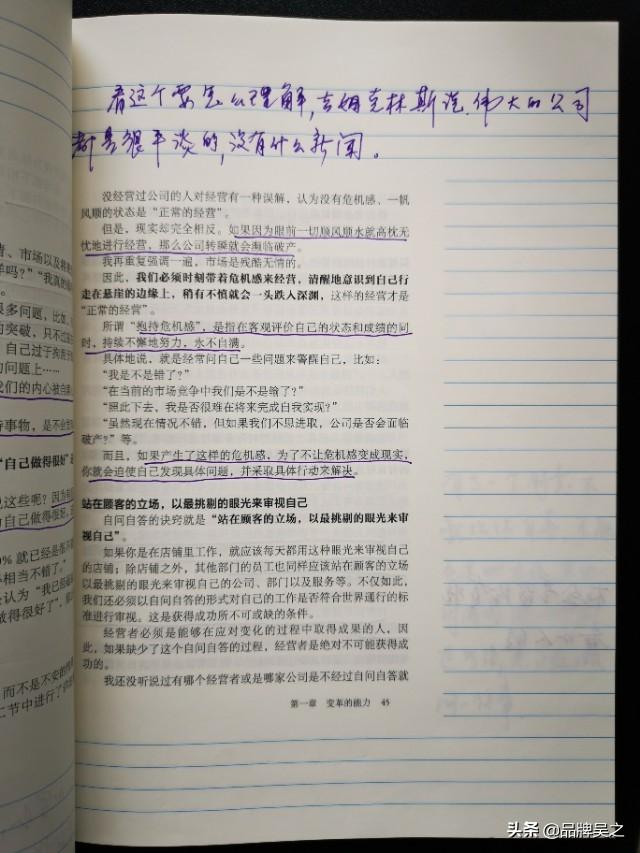 看这个要怎么理解，吉姆克林斯说，伟大的公司
都是很平淡的，没有什么新闻。
没经营过公司的人对经营有一种误解，认为没有危机感、一帆
风顺的状态是“正常的经营”。
但是，现实却完全相反。如果因为眼前一切顺风顺水就高枕无
忧地进行经营，那么公司转瞬就会濒临破产。
我再重复强调一遍，市场是残酷无情的。
因此，我们必须时刻带着危机感来经营，清醒地意识到自己行
走在悬崖的边缘上，稍有不慎就会一头跌入深渊，这样的经营才是
“正常的经营”。
所谓“抱持危机感”，是指在客观评价自己的状态和成绩的同
时，持续不懈地努力，永不自满。
具体地说，就是经常问自己一些问题来警醒自己，比如：
“我是不是错了？”
“在当前的市场竞争中我们是不是输了？”
“照此下去，我是否很难在将来完成自我实现？”
“虽然现在情况不错，但如果我们不思进取，公司是否会面临
破产？”等。
而且，如果产生了这样的危机感，为了不让危机感变成现实，
你就会迫使自己发现具体问题，并采取具体行动来解决。
站在顾客的立场，以最挑剔的眼光来审视自己
自问自答的诀窍就是“站在顾客的立场，以最挑剔的眼光来审
视自己”。
如果你是在店铺里工作，就应该每天都用这种眼光来审视自己
的店铺；除店铺之外，其他部门的员工也同样应该站在顾客的立场
以最挑剔的眼光来审视自己的公司、部门以及服务等。不仅如此，
我们还必须以自问自答的形式对自己的工作是否符合世界通行的标
准进行审视。这是获得成功所不可或缺的条件。
经营者必须是能够在应对变化的过程中取得成果的人，因
此，如果缺少了这个自问自答的过程，经营者是绝对不可能获得成
功的。
我还没听说过有哪个经营者或是哪家公司是不经过自问自答就
第一章 变革的能力 45
头条 @品牌吴之